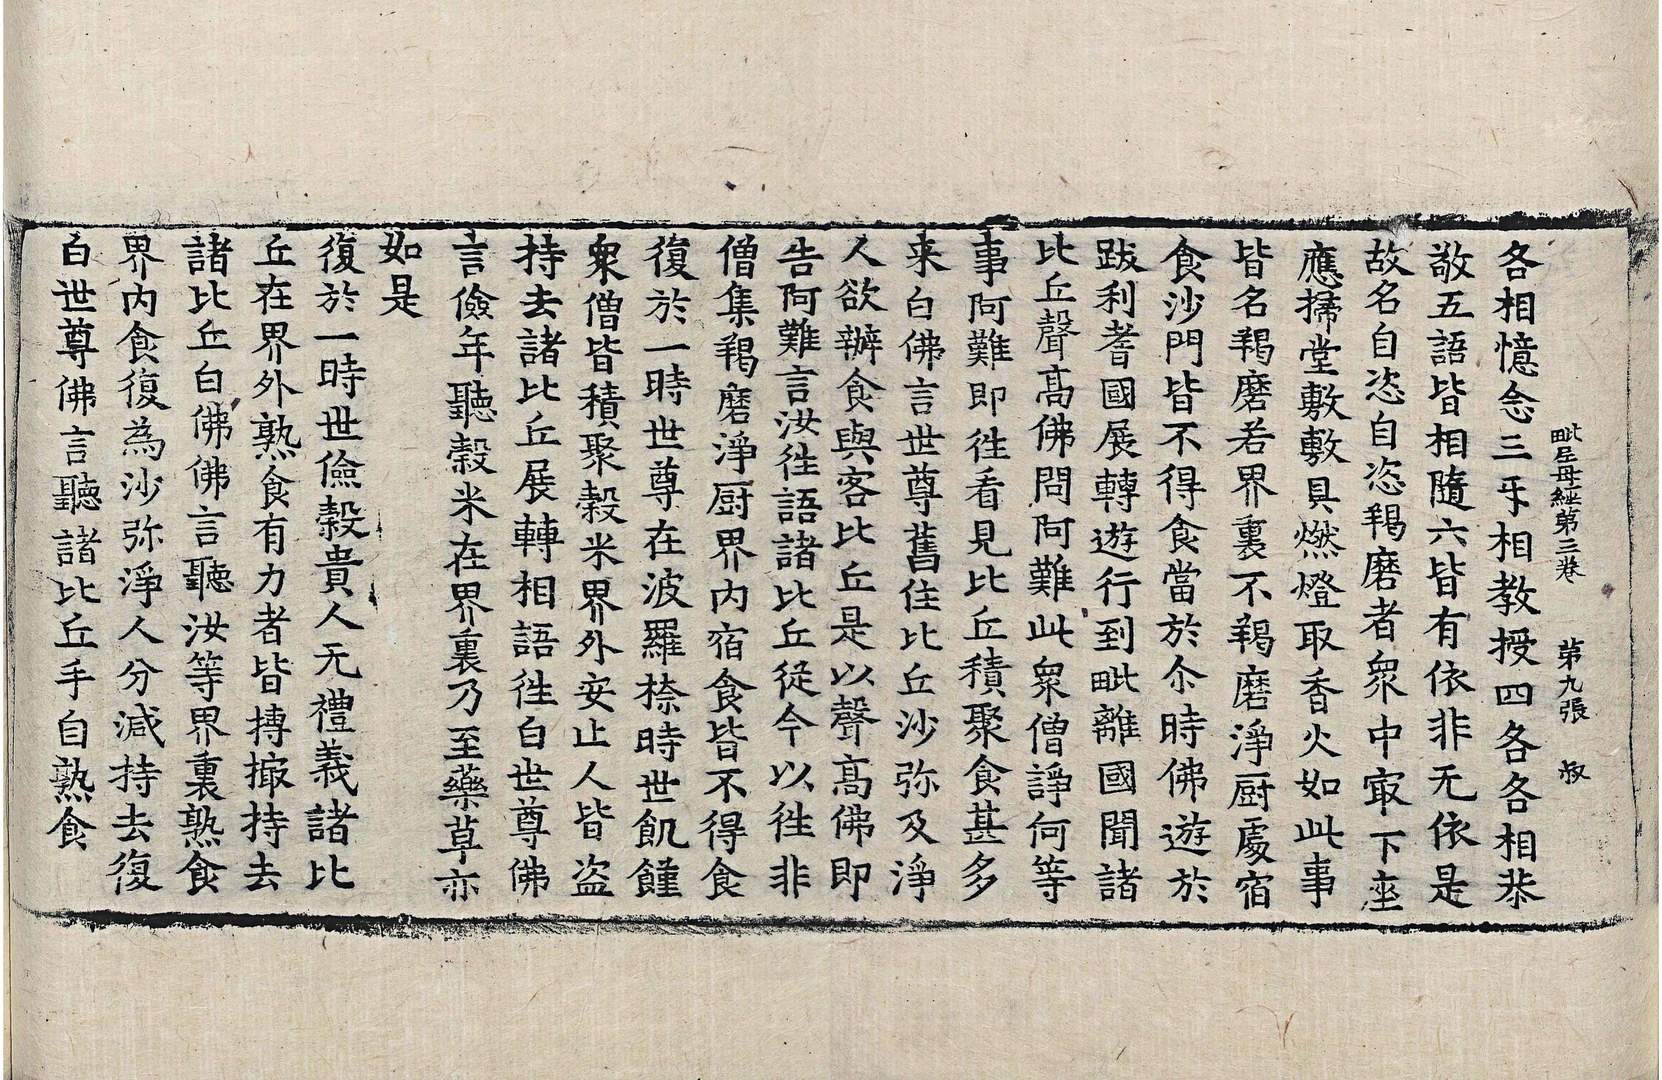 毗尼母經第三卷 第九張 叔
各相憶念三乎相教授四各各相恭
敬五語皆相隨六皆有依非无依是
故名自恣自恣羯磨者衆中㝡下座
應掃堂敷敷具燃燈取香火如此事
皆名羯磨若界裏不羯磨淨厨處宿
食沙門皆不得食當於尒時佛遊於
跋利耆國展轉遊行到毗離國聞諸
比丘聲高佛問阿難此衆僧諍何等
事阿難即徃看見比丘積聚食甚多
来白佛言世尊舊住比丘沙弥及淨
人欲辦食與客比丘是以聲高佛即
告阿難言汝徃語諸比丘從今以徃非
僧集羯磨淨厨界内宿食皆不得食
復於一時世尊在波羅㮈時世飢饉
衆僧皆積聚穀米界外安止人皆盜
持去諸比丘展轉相語徃白世尊佛
言儉年聽穀米在界裏乃至藥草亦
如是
復於一時世儉穀貴人无禮義諸比
丘在界外熟食有力者皆摶撮持去
諸比丘白佛佛言聽汝等界裏熟食
界内食復為沙弥淨人分減持去復
白世尊佛言聽諸比丘手自熟食